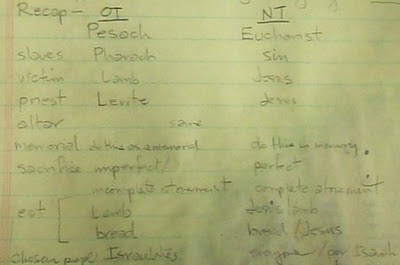 Recap - OT NT
Pesach Eucharist
slaves Pharaoh sin
victim Lamb Jesus
priest Levite Jesus
altar same
memorial do this as a memorial do this in memory.
sacrifice imperfect/ perfect
incomplete atonement complete atonement
eat Lamb Jesus lamb
bread bread/Jesus
chosen people Israelites everyone/per Isaiah